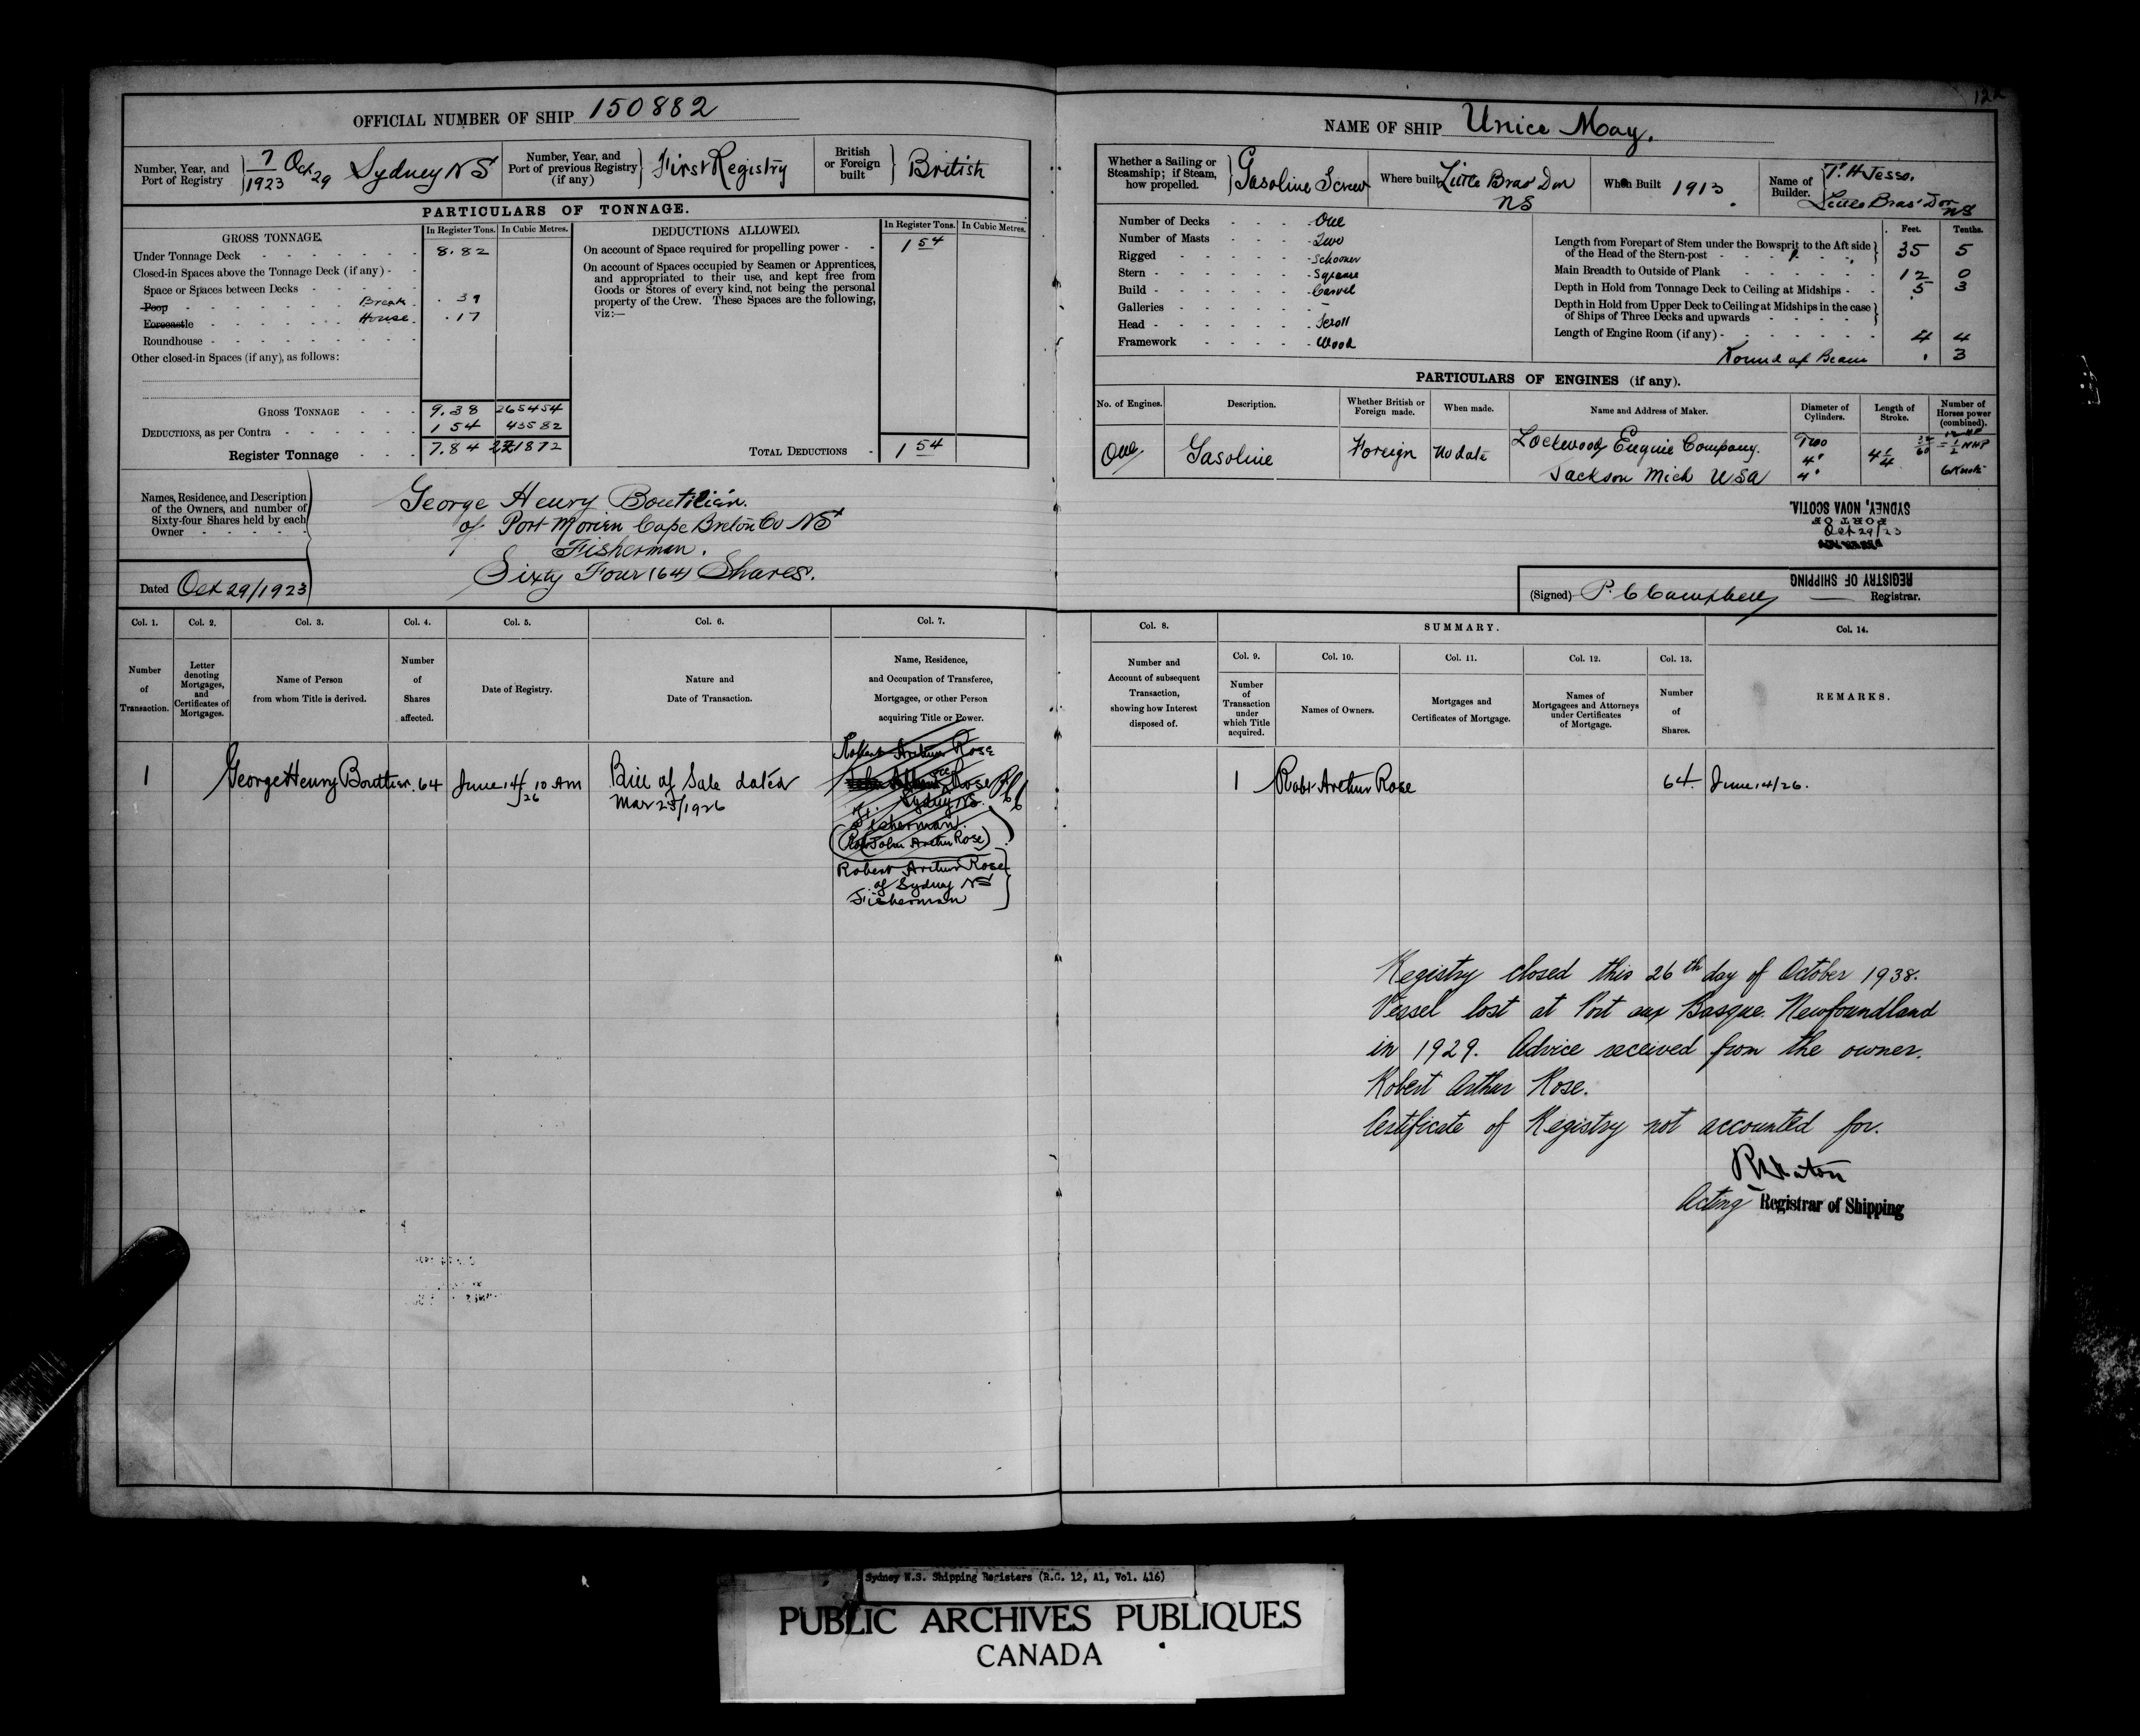 OFFICIAL NUMBER OF SHIP 150882
Number, Year, and Port of Registry 7/1923 Oct 29 Sydney NS
Number, Year, and Port of previous Registry (if any) First Registry
British or Foreign built British
PARTICULARS OF TONNAGE.
GROSS TONNAGE. In Register Tons. In Cubic Metres.
Under Tonnage Deck 8.82
Closed-in Spaces above the Tonnage Deck (if any)
Space or Spaces between Decks
Poop Break .39
Forecastle House .17
Roundhouse
Other closed-in Spaces (if any), as follows:
GROSS TONNAGE 9.38 265454
DEDUCTIONS, as per Contra 1 54 43582
Register Tonnage 7.84 221872
DEDUCTIONS ALLOWED. In Register Tons. In Cubic Metres.
On account of Space required for propelling power 1 54
On account of Spaces occupied by Seamen or Apprentices,
and appropriated to their use, and kept free from
Goods or Stores of every kind, not being the personal
property of the Crew. These Spaces are the following,
viz:—
TOTAL DEDUCTIONS 1 54
Names, Residence, and Description
of the Owners, and number of
Sixty-four Shares held by each
Owner
George Henry Boutilier.
of Port Morien Cape Breton Co NS
Fisherman.
Sixty Four (64) Shares.
Dated Oct 29/1923
Col. 1. Col. 2. Col. 3. Col. 4. Col. 5. Col. 6. Col. 7.
Number of Transaction.
Letter denoting Mortgages, and Certificates of Mortgages.
Name of Person from whom Title is derived.
Number of Shares affected.
Date of Registry.
Nature and Date of Transaction.
Name, Residence, and Occupation of Transferee, Mortgagee, or other Person acquiring Title or Power.
1 George Henry Boutilier. 64 June 14/26 10 AM Bill of Sale dated
Mar 25/1926
Robert Arthur Rose
Rose
Sydney NS.
Fisherman.
(John Arthur Rose)
Robert Arthur Rose
of Sydney NS
Fisherman
NAME OF SHIP Unice May.
Whether a Sailing or Steamship; if Steam, how propelled. Gasoline Screw
Where built Little Bras Dor NS
When Built 1913.
Name of Builder. T. H Jesso.
Little Bras Dor NS
Number of Decks One
Number of Masts Two
Rigged Schooner
Stern Square
Build Carvel
Galleries –
Head Scroll
Framework Wood
Feet. Tenths.
Length from Forepart of Stem under the Bowsprit to the Aft side
of the Head of the Stern-post 35 5
Main Breadth to Outside of Plank 12 0
Depth in Hold from Tonnage Deck to Ceiling at Midships 5 3
Depth in Hold from Upper Deck to Ceiling at Midships in the case
of Ships of Three Decks and upwards
Length of Engine Room (if any) 4 4
Round of Beam . 3
PARTICULARS OF ENGINES (if any).
No. of Engines. Description. Whether British or Foreign made. When made. Name and Address of Maker. Diameter of Cylinders. Length of Stroke. Number of Horses power (combined).
One Gasoline Foreign No date Lockwood Engine Company.
Jackson Mich USA
Two
4"
4"
4 1/4
6 Knots
SYDNEY, NOVA SCOTIA.
PORT OF
Oct 29/23
REGISTRY OF SHIPPING
(Signed) P. C Campbell Registrar.
Col. 8. SUMMARY. Col. 14.
Col. 9. Col. 10. Col. 11. Col. 12. Col. 13.
Number and Account of subsequent Transaction, showing how Interest disposed of.
Number of Transaction under which Title acquired.
Names of Owners.
Mortgages and Certificates of Mortgage.
Names of Mortgagees and Attorneys under Certificates of Mortgage.
Number of Shares.
REMARKS.
1 Robt Arthur Rose 64. June 14/26.
Registry closed this 26th day of October 1938.
Vessel lost at Port aux Basque Newfoundland
in 1929. Advice received from the owner.
Robert Arthur Rose.
Certificate of Registry not accounted for.
Acting Registrar of Shipping
Sydney N.S. Shipping Registers (R.G. 12, A1, Vol. 416)
PUBLIC ARCHIVES PUBLIQUES
CANADA